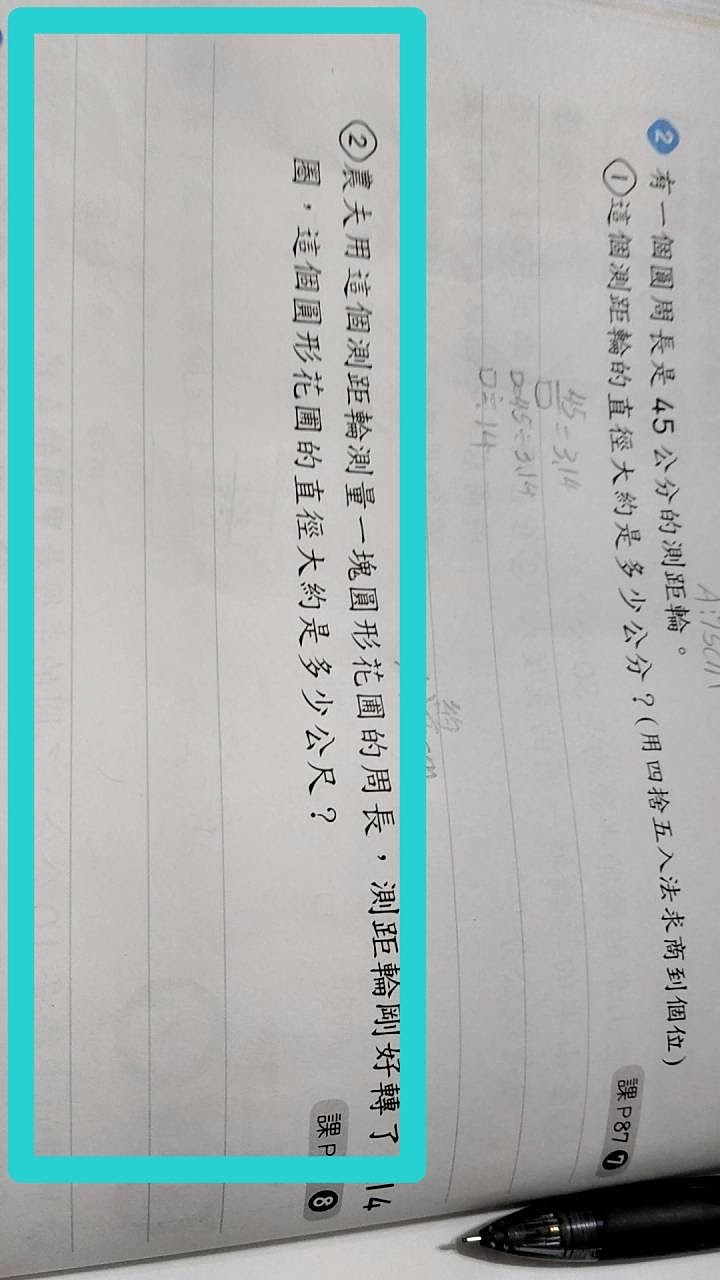 A:15cm
2 有一個圓周長是45公分的測距輪。
①這個測距輪的直徑大約是多少公分?(用四捨五入法求商到個位)
課P87 7
45/□=3.14
□=45÷3.14
□≒14
約
②農夫用這個測距輪測量一塊圓形花圃的周長,測距輪剛好轉了14
圈,這個圓形花圃的直徑大約是多少公尺?
課P 8